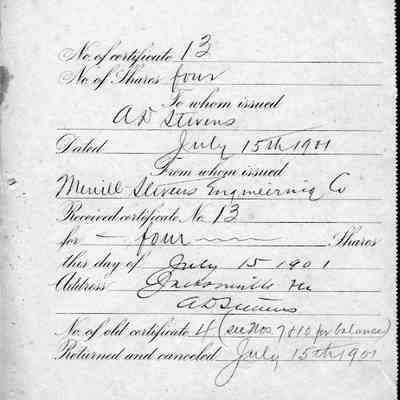 No. of certificate 13
No. of Shares four
To whom issued
AD Stevens
Dated July 15th 1901
From whom issued
Merrill Stevens Engineering Co
Received certificate No. 13
for - four Shares
this day of July 15 1901
Address Jacksonville Fla
AD Stevens
No. of old certificate 4 (see Nos. 7 & 10 for balance)
Returned and canceled July 15th 1901